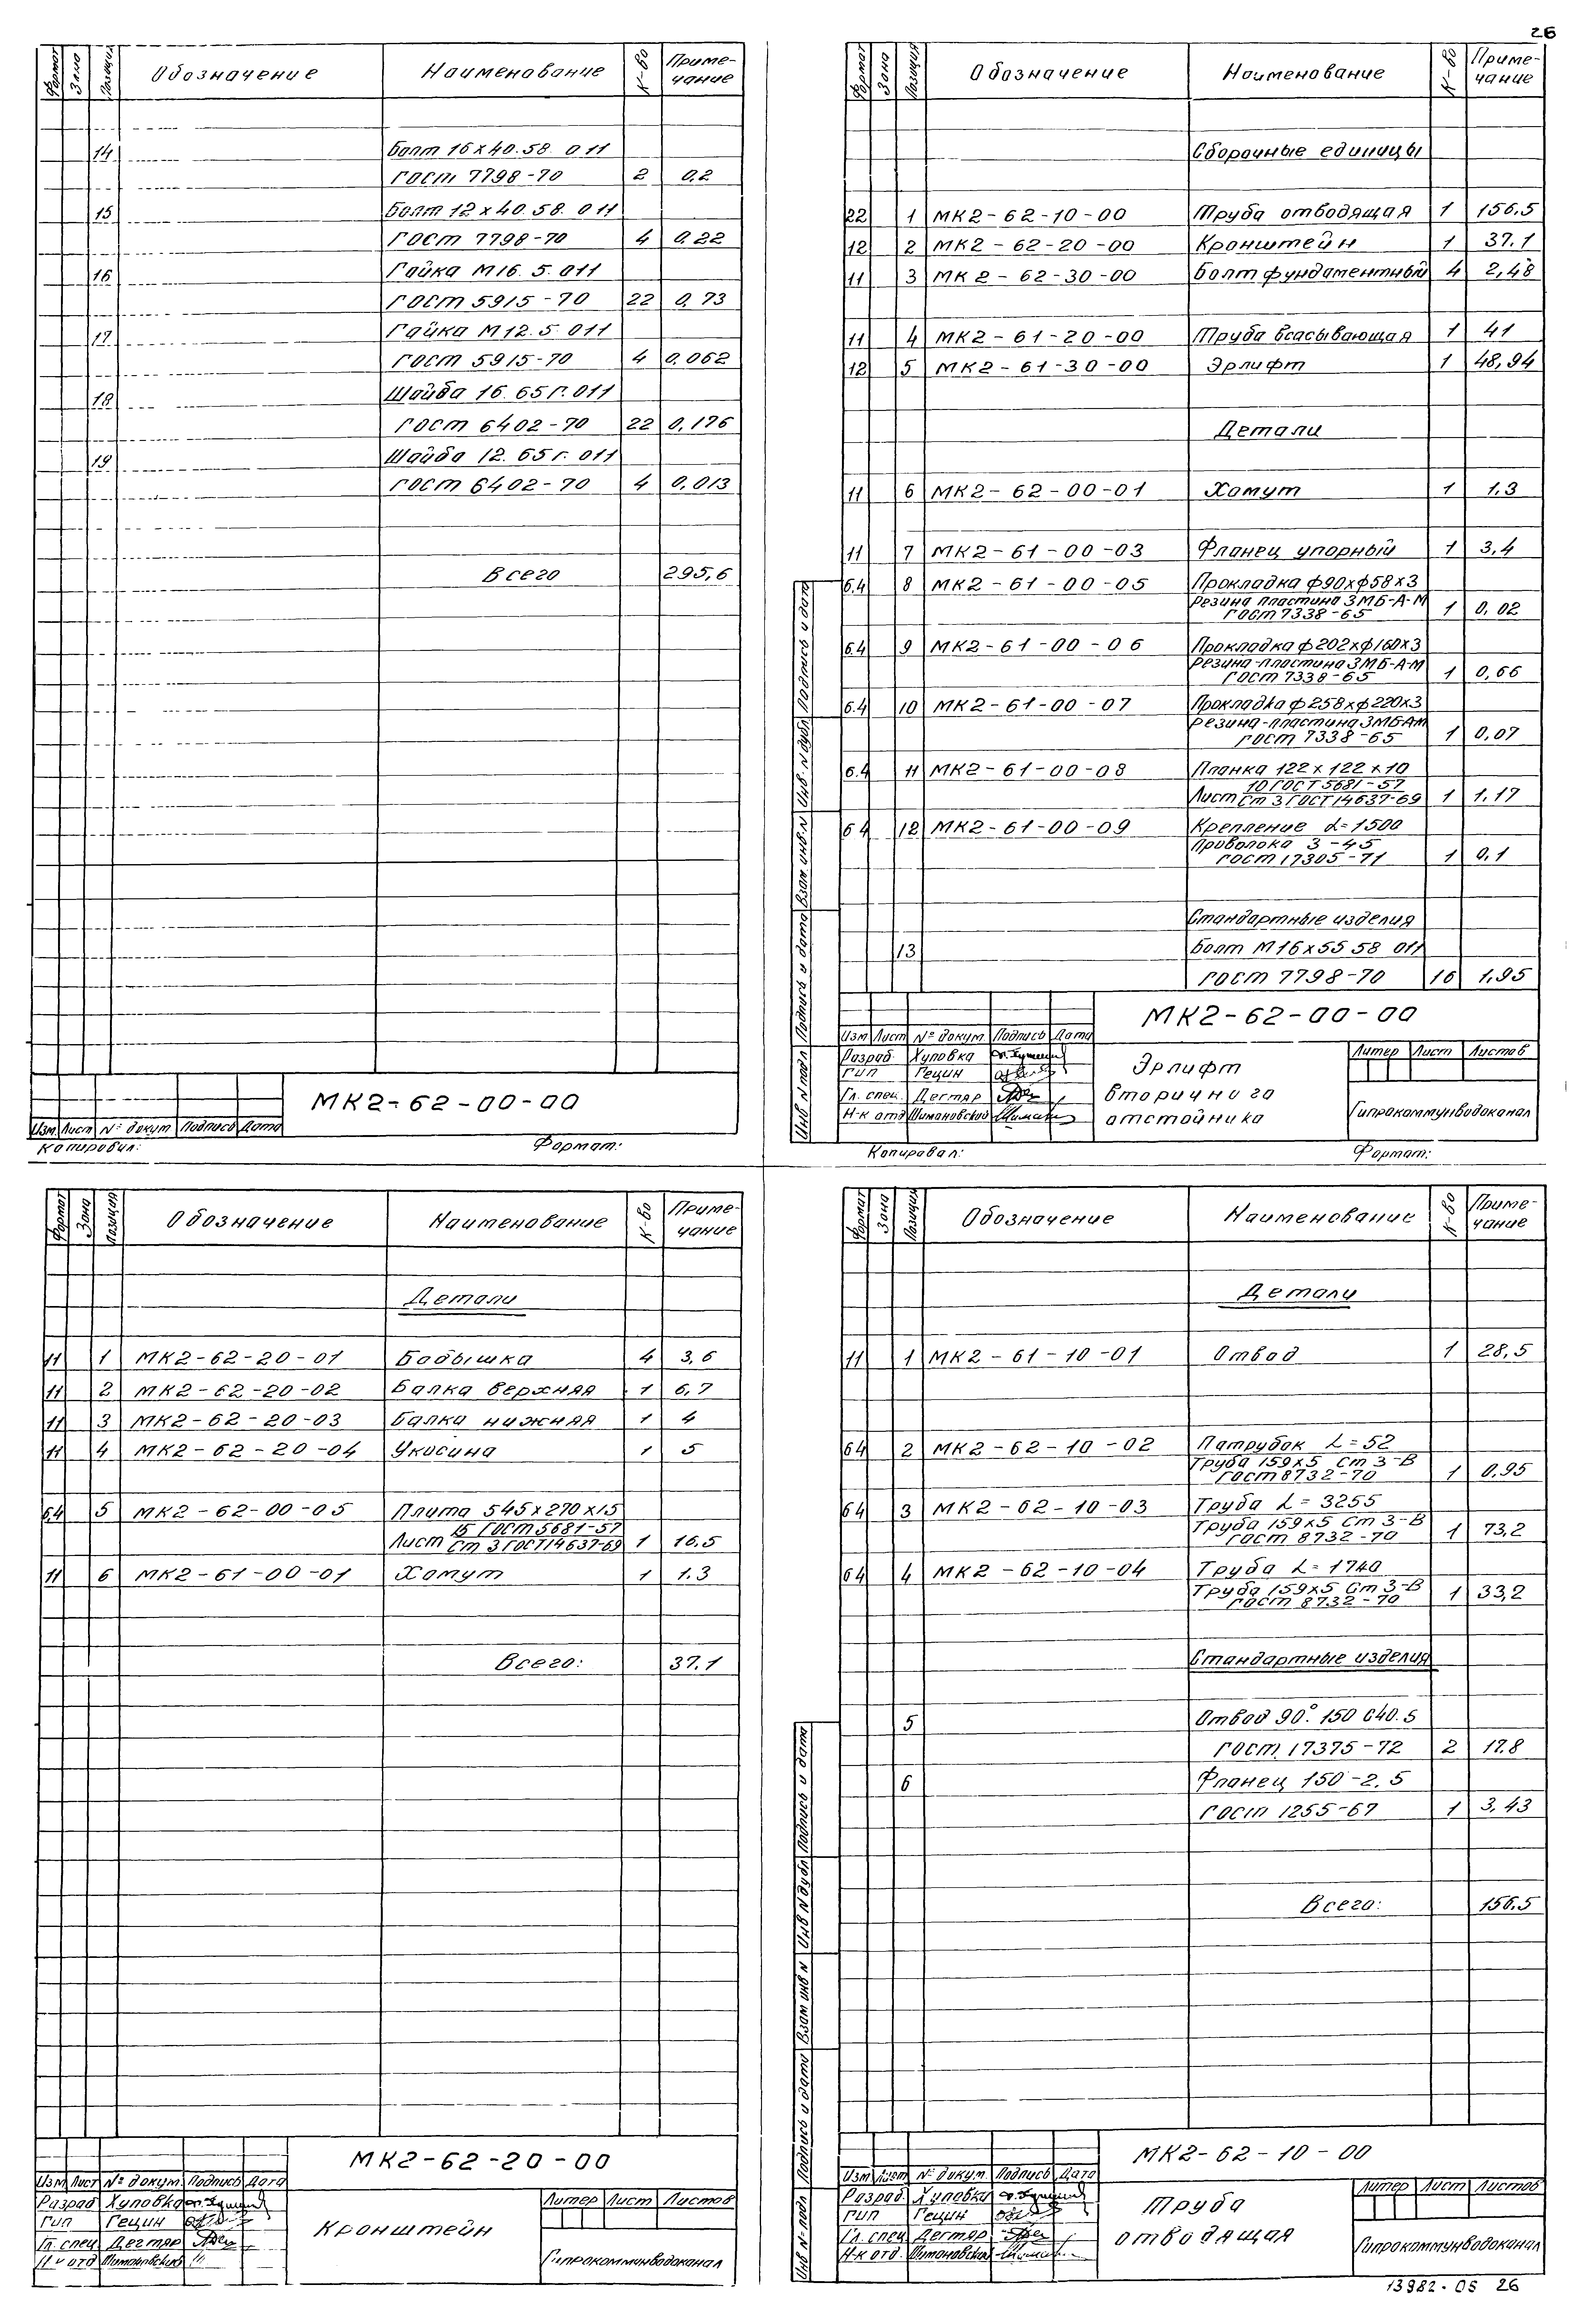 26
Формат Зона Позиция Обозначение Наименование К-во Приме-чание
14 Болт 16×40.58.011
ГОСТ 7798-70 2 0,2
15 Болт 12×40.58.011
ГОСТ 7798-70 4 0,22
16 Гайка М16.5.011
ГОСТ 5915-70 22 0,73
17 Гайка М12.5.011
ГОСТ 5915-70 4 0,062
18 Шайба 16.65Г.011
ГОСТ 6402-70 22 0,176
19 Шайба 12.65Г.011
ГОСТ 6402-70 4 0,013
Всего 295,6
МК2-62-00-00
Изм Лист № докум Подпись Дата
Копировал: Формат:
Формат Зона Позиция Обозначение Наименование К-во Приме-чание
Сборочные единицы
22 1 МК2-62-10-00 Труба отводящая 1 156,5
12 2 МК2-62-20-00 Кронштейн 1 37,1
11 3 МК2-62-30-00 Болт фундаментный 4 2,48
11 4 МК2-61-20-00 Труба всасывающая 1 41
12 5 МК2-61-30-00 Эрлифт 1 48,94
Детали
11 6 МК2-62-00-01 Хомут 1 1,3
11 7 МК2-61-00-03 Фланец упорный 1 3,4
б.4 8 МК2-61-00-05 Прокладка ф90×ф58×3
Резина пластина 3МБ-А-М
ГОСТ 7338-65 1 0,02
б.4 9 МК2-61-00-06 Прокладка ф202×ф160×3
Резина-пластина 3МБ-А-М
ГОСТ 7338-65 1 0,66
б.4 10 МК2-61-00-07 Прокладка ф258×ф220×3
Резина-пластина 3МБАМ
ГОСТ 7338-65 1 0,07
б.4 11 МК2-61-00-08 Планка 122×122×10
Лист 10 ГОСТ 5681-57
Ст 3 ГОСТ 14637-69 1 1,17
б4 12 МК2-61-00-09 Крепление L=1500
Проволока 3-45
ГОСТ 17305-71 1 0,1
Стандартные изделия
13 Болт М16×55 58 011
ГОСТ 7798-70 16 1,95
Инв N подл Подпись и дата Взам инв.N Инв.N дубл. Подпись и дата
МК2-62-00-00
Изм Лист № докум Подпись Дата
Разраб Хуповка
ГИП Гецин
Гл. спец. Дегтяр
Н-к отд Шимановский
Эрлифт
вторичного
отстойника
Литер Лист Листов
Гипрокоммунводоканал
Копировал: Формат:
Формат Зона Позиция Обозначение Наименование К-во Приме-чание
Детали
11 1 МК2-62-20-01 Бобышка 4 3,6
11 2 МК2-62-20-02 Балка верхняя 1 6,7
11 3 МК2-62-20-03 Балка нижняя 1 4
11 4 МК2-62-20-04 Укосина 1 5
б4 5 МК2-62-00-05 Плита 545×270×15
Лист 15 ГОСТ 5681-57
Ст 3 ГОСТ 14637-69 1 16.5
11 6 МК2-61-00-01 Хомут 1 1.3
Всего: 37.1
МК2-62-20-00
Изм Лист № докум. Подпись Дата
Разраб Хуповка
ГИП Гецин
Гл. спец Дегтяр
Н-к отд Шимановский
Кронштейн
Литер Лист Листов
Гипрокоммунводоканал
Формат Зона Позиция Обозначение Наименование К-во Приме-чание
Детали
11 1 МК2-61-10-01 Отвод 1 28,5
б4 2 МК2-62-10-02 Патрубок L=52
Труба 159×5 Ст 3-В
ГОСТ 8732-70 1 0.95
б4 3 МК2-62-10-03 Труба L=3255
Труба 159×5 Ст 3-В
ГОСТ 8732-70 1 73,2
б4 4 МК2-62-10-04 Труба L=1740
Труба 159×5 Ст 3-В
ГОСТ 8732-70 1 33,2
Стандартные изделия
5 Отвод 90°.150 С40.5
ГОСТ 17375-72 2 17.8
6 Фланец 150-2.5
ГОСТ 1255-67 1 3,43
Всего: 156.5
Инв № подл Подпись и дата Взам инв N Инв N дубл Подпись и дата
МК2-62-10-00
Изм Лист № докум. Подпись Дата
Разраб. Хуповка
ГИП Гецин
Гл. спец Дегтяр
Н-к отд. Шимановский
Труба
отводящая
Литер Лист Листов
Гипрокоммунводоканал
13982-05 26